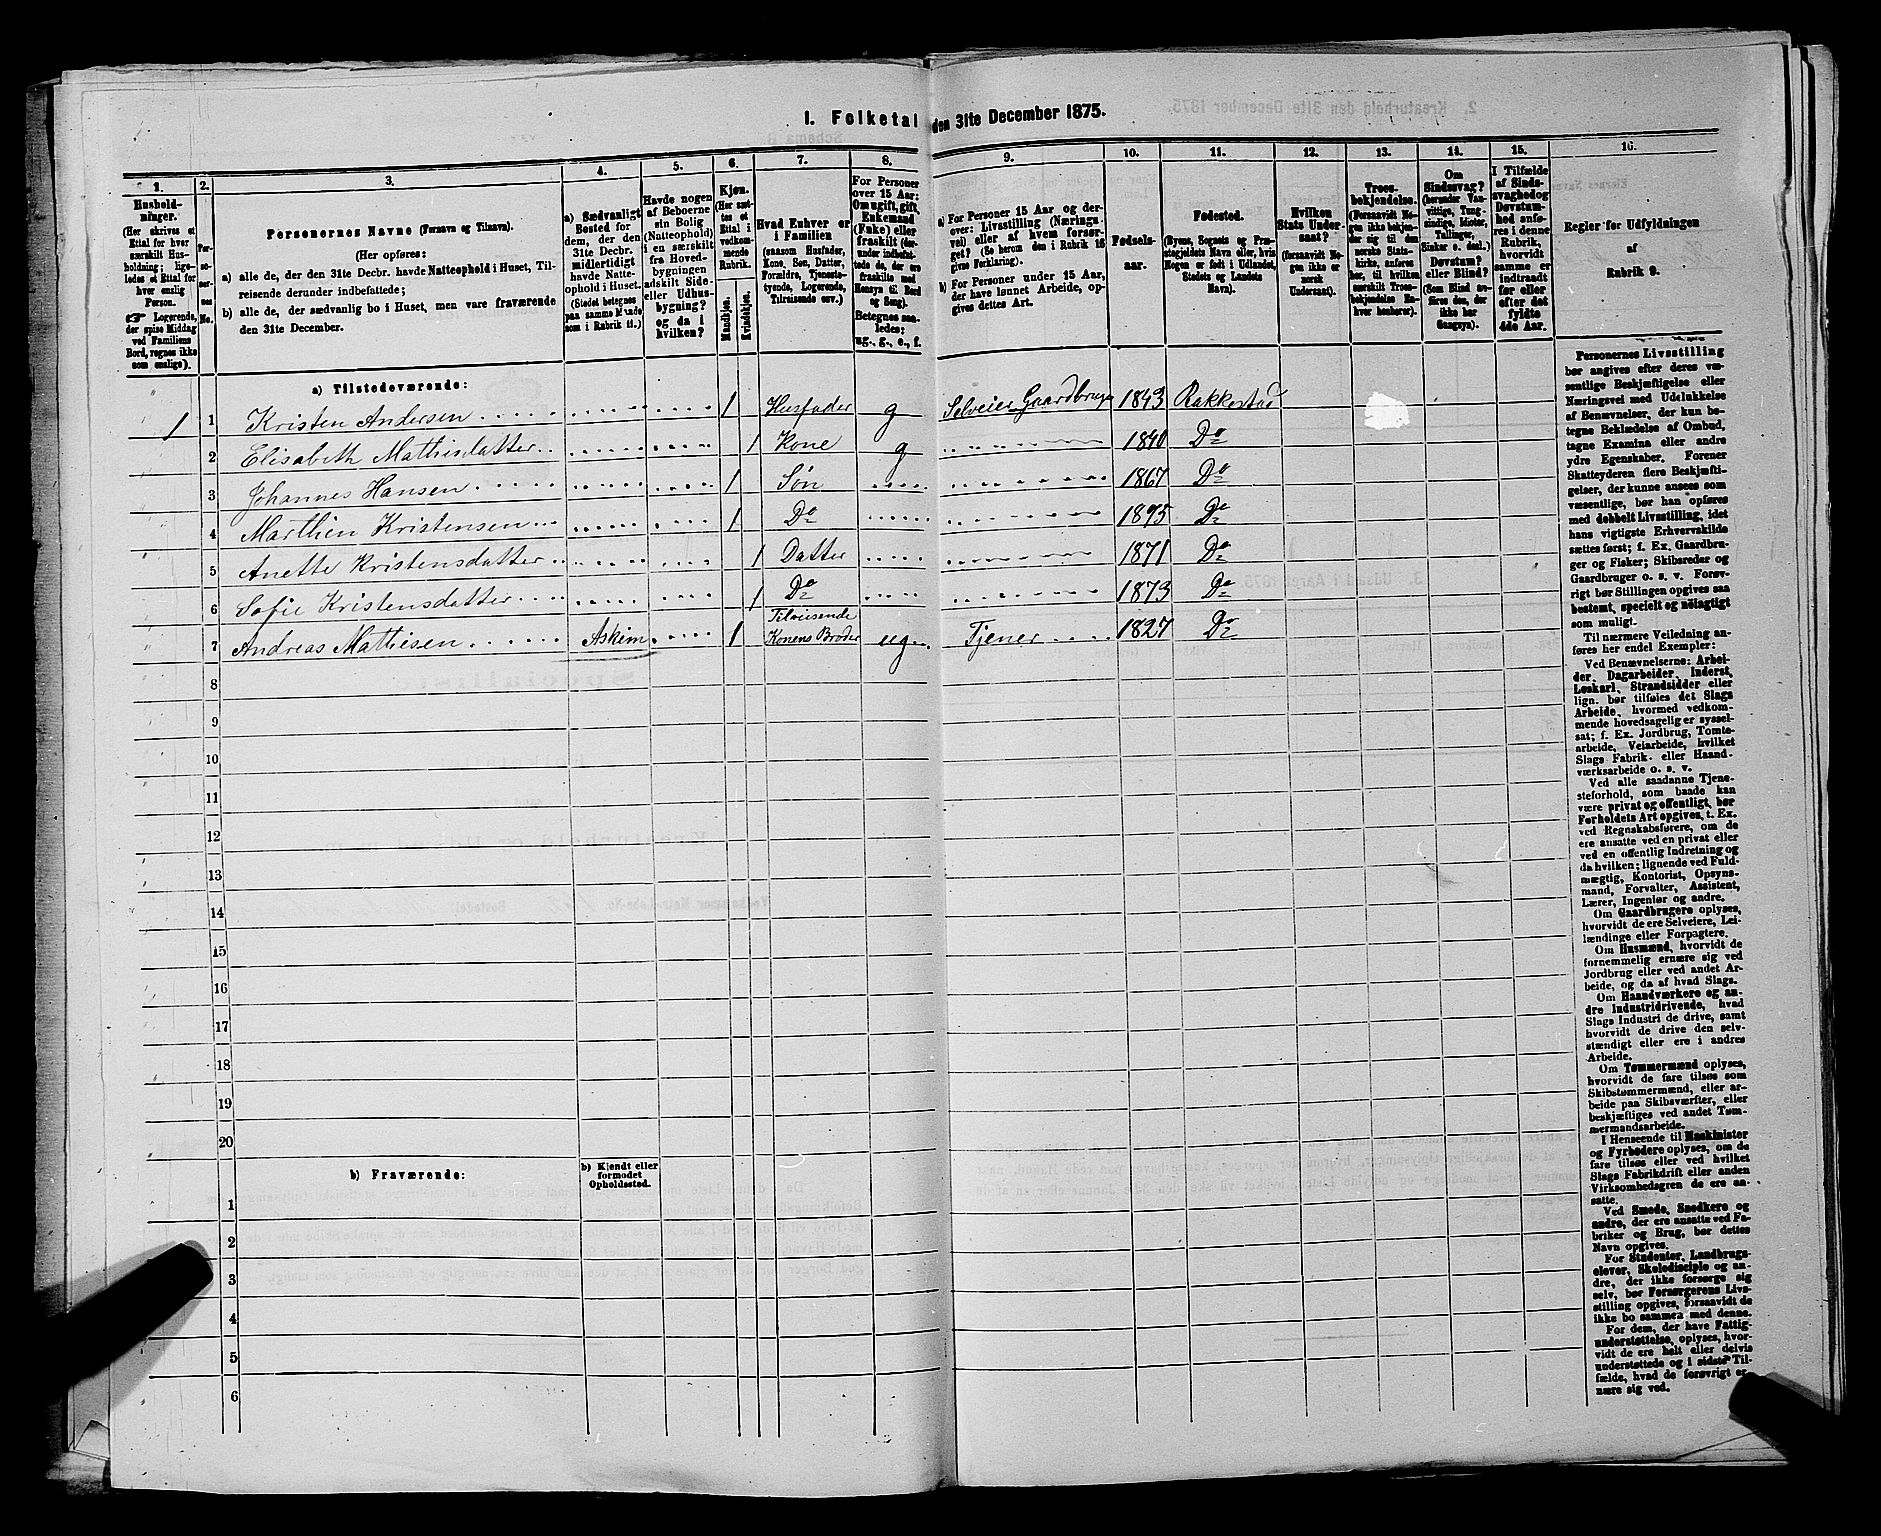 1. Folketal den 31te December 1875.
1.
2.
3.
4.
5.
6.
7.
8.
9.
10.
11.
12.
13.
14.
15.
16.
Hushold-
ninger.
(Her skrives et
Ettal for hver
særskilt Hus-
holdning; lige-
ledes et Ettal for
hver enslig
Person.
☞ Logerende,
der spise Middag
ved Familiens
Bord, regnes ikke
som enslige).
Per-
so-
ner-
nes
No.
Personernes Navne (Fornavn og Tilnavn).
(Her opføres:
a) alle de, der den 31te Decbr. havde Natteophold i Huset, Til-
reisende derunder indbefattede;
b) alle de, der sædvanlig bo i Huset, men vare fraværende
den 31te December.
a) Sædvanligt
Bosted for
dem, der den
31te Decbr.
midlertidigt
havde Natte-
ophold i Huset.
(Stedet betegnes
paa samme Maade
som i Rubrik 11.)
Havde nogen
af Beboerne
sin Bolig
(Natteophold)
i en særskilt
fra Hoved-
bygningen
adskilt Side-
eller Udhus-
bygning?
og da i
hvilken?
Kjøn.
(Her sæt-
tes et
Ettal i
vedkom-
mende
Rubrik.
Mandkjøn.
Kvindekjøn.
Hvad Enhver er
i Familien
(saasom Husfader,
Kone, Søn, Datter,
Forældre, Tjeneste-
tyende, Logerende,
Tilreisende osv.)
For Personer
over 15 Aar:
Om ugift, gift,
Enkemand
(Enke) eller
fraskilt (der-
under indbefat-
tede de, der ere
fraskilte med
Hensyn til Bord
og Seng).
Betegnes saa-
ledes:
ug., g., e., f.
a) For Personer 15 Aar og der-
over: Livsstilling (Nærings-
vei) eller af hvem forsør-
get? (Se herom den i Rubrik 16
givne Forklaring).
b) For Personer under 15 Aar,
der have lønnet Arbeide, op-
gives dettes Art.
Fødsels-
aar.
Fødested.
(Byens, Sognets og Præ-
stegjeldets Navn eller, hvis
Nogen er født i Udlandet,
Stedets og Landets
Navn).
Hvilken
Stats Under-
saat?
(forsaavidt No-
gen ikke er
norsk
Undersaat).
Troes-
bekjendelse.
(Forsaavidt No-
gen ikke bekjen-
der sig til den
norske Stats-
kirke, anføres
her, til hvilken
særskilt Troes-
bekjendelse En-
hver henhører).
Om
Sindssvag?
(herunder Van-
vittige, Tung-
sindige, Idioter,
Tullinger,
Sinker o. desl.)
Døvstum?
eller Blind?
(Som Blind an-
føres den, der
ikke har
Gangsyn).
I Tilfælde
af Sinds-
svaghed og
Døvstum-
hed anfø-
res i denne
Rubrik,
hvorvidt
samme er
indtraadt
før eller
efter det
fyldte
4de Aar.
Regler for Udfyldningen
af
Rubrik 9.
a) Tilstedeværende:
1 1 Kristen Andersen 1 Husfader g Selveier Gaardbruger 1843 Rakkestad
2 Elisabeth Mathisdatter 1 Kone g 1840 Do
3 Johannes Hansen 1 Søn 1867 Do
4 Marthin Kristensen 1 Do 1875 Do
5 Anette Kristensdatter 1 Datter 1871 Do
6 Sofie Kristensdatter 1 Do 1873 Do
7 Andreas Mathisen Askim 1 Tilreisende Konens Broder ug. Tjener 1827 Do
8
9
10
11
12
13
14
15
16
17
18
19
20
b) Fraværende:
b) Kjendt eller
formodet
Opholdssted.
1
2
3
4
5
6
Personernes Livsstilling
bør angives efter deres væ-
sentlige Beskjæftigelse eller
Næringsvei med Udelukkelse
af Benævnelser, der kun be-
tegne Beklædelse af Ombud,
tagne Examina eller andre
ydre Egenskaber. Forener
Skatteyderen flere Beskjæfti-
gelser, der kunne ansees som
væsentlige, bør han opføres
med dobbelt Livsstilling, idet
hans vigtigste Erhvervskilde
sættes først; f. Ex. Gaardbru-
ger og Fisker; Skibsreder og
Gaardbruger o. s. v. Forøv-
rigt bør Stillingen opgives saa
bestemt, specielt og nöiagtigt
som muligt.
Til nærmere Veiledning an-
føres her endel Exempler:
Ved Benævnelserne: Arbei-
der, Dagarbeider, Inderst,
Løskarl, Strandsidder eller
lign. bør tilføies det Slags
Arbeide, hvormed vedkom-
mende hovedsagelig er syssel-
sat; f. Ex. Jordbrug, Tomte-
arbeide, Veiarbeide, hvilket
Slags Fabrik- eller Haand-
værksarbeide o. s. v.
Ved alle saadanne Tjene-
steforhold, som baade kan
være privat og offentligt, bør
Forholdets Art opgives, t. Ex.
ved Regnskabsførere, om de
ere ansatte ved en privat eller
ved en offentlig Indretning og
da hvilken; lignende ved Fuld-
mægtig, Kontorist, Opsyns-
mand, Forvalter, Assistent,
Lærer, Ingeniør og andre.
Om Gaardbrugere oplyses,
hvorvidt de ere Selveiere, Lei-
lændinge eller Forpagtere.
Om Husmænd, hvorvidt de
fornemmelig ernære sig ved
Jordbrug eller ved andet Ar-
beide, og da af hvad Slags.
Om Haandværkere og an-
dre Industridrivende, hvad
Slags Industri de drive, samt
hvorvidt de drive den selv-
stændigt eller ere i andres
Arbeide.
Om Tømmermænd oplyses,
hvorvidt de fare tilsøs som
Skibstømmermænd, eller ar-
beide paa Skibsværfter, eller
beskjæftiges ved andet Tøm-
mermandsarbeide.
I Henseende til Maskinister
og Fyrbødere oplyses, om de
fare tilsøs eller ved hvilket
Slags Fabrikdrift eller anden
Virksomhedsgren de ere an-
satte.
Ved Smede, Snedkere og
andre, der ere ansatte ved Fa-
briker og Brug, bør dettes
Navn opgives.
For Studenter, Landbrugs-
elever, Skoledisciple og an-
dre, der ikke forsørge sig
selv, bør Forsørgerens Livs-
stilling opgives, forsaavidt de
ikke bo sammen med denne.
For dem, der have Fattig-
understøttelse, oplyses, hvor-
vidt de ere helt eller delvis
understøttede og i sidste Til-
fælde, hvad de forøvrigt er-
nære sig ved.